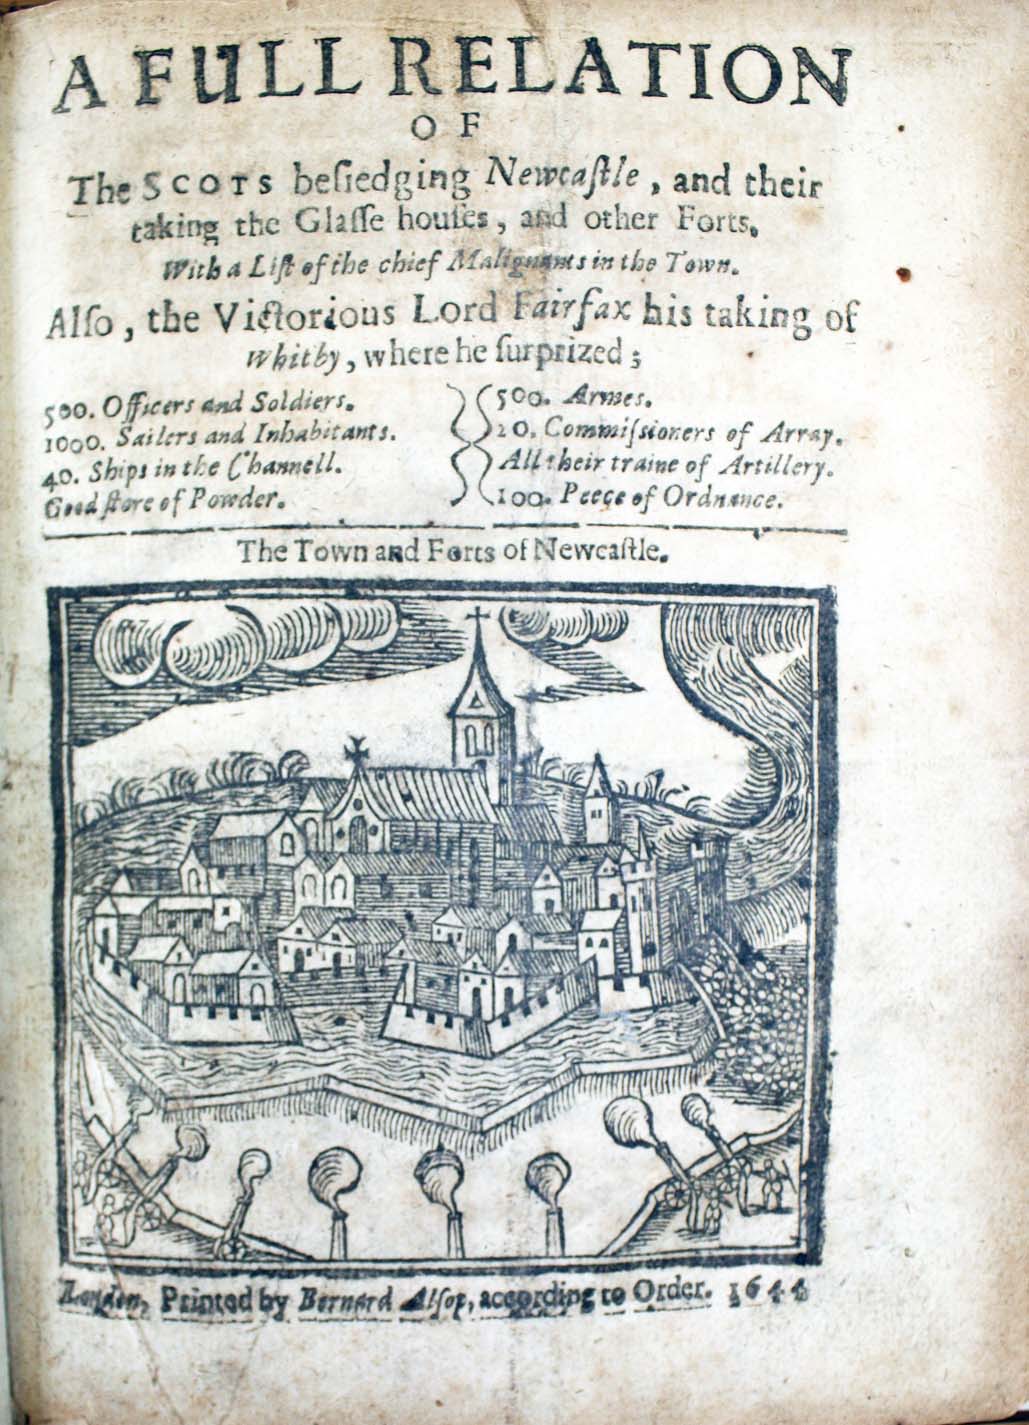 A FULL RELATION
OF
The SCOTS beſiedging Newcaſtle, and their
taking the Glaſſe houſes, and other Forts.
With a Liſt of the chief Malignants in the Town.
Alſo, the Victorious Lord Fairfax his taking of
Whitby, where he ſurprized;
500. Officers and Soldiers.
1000. Sailers and Inhabitants.
40. Ships in the Channell.
Good ſtore of Powder.
500. Armes.
20. Commiſsioners of Array.
All their traine of Artillery.
100. Peece of Ordnance.
The Town and Forts of Newcaſtle.
London, Printed by Bernard Alſop, according to Order. 1644